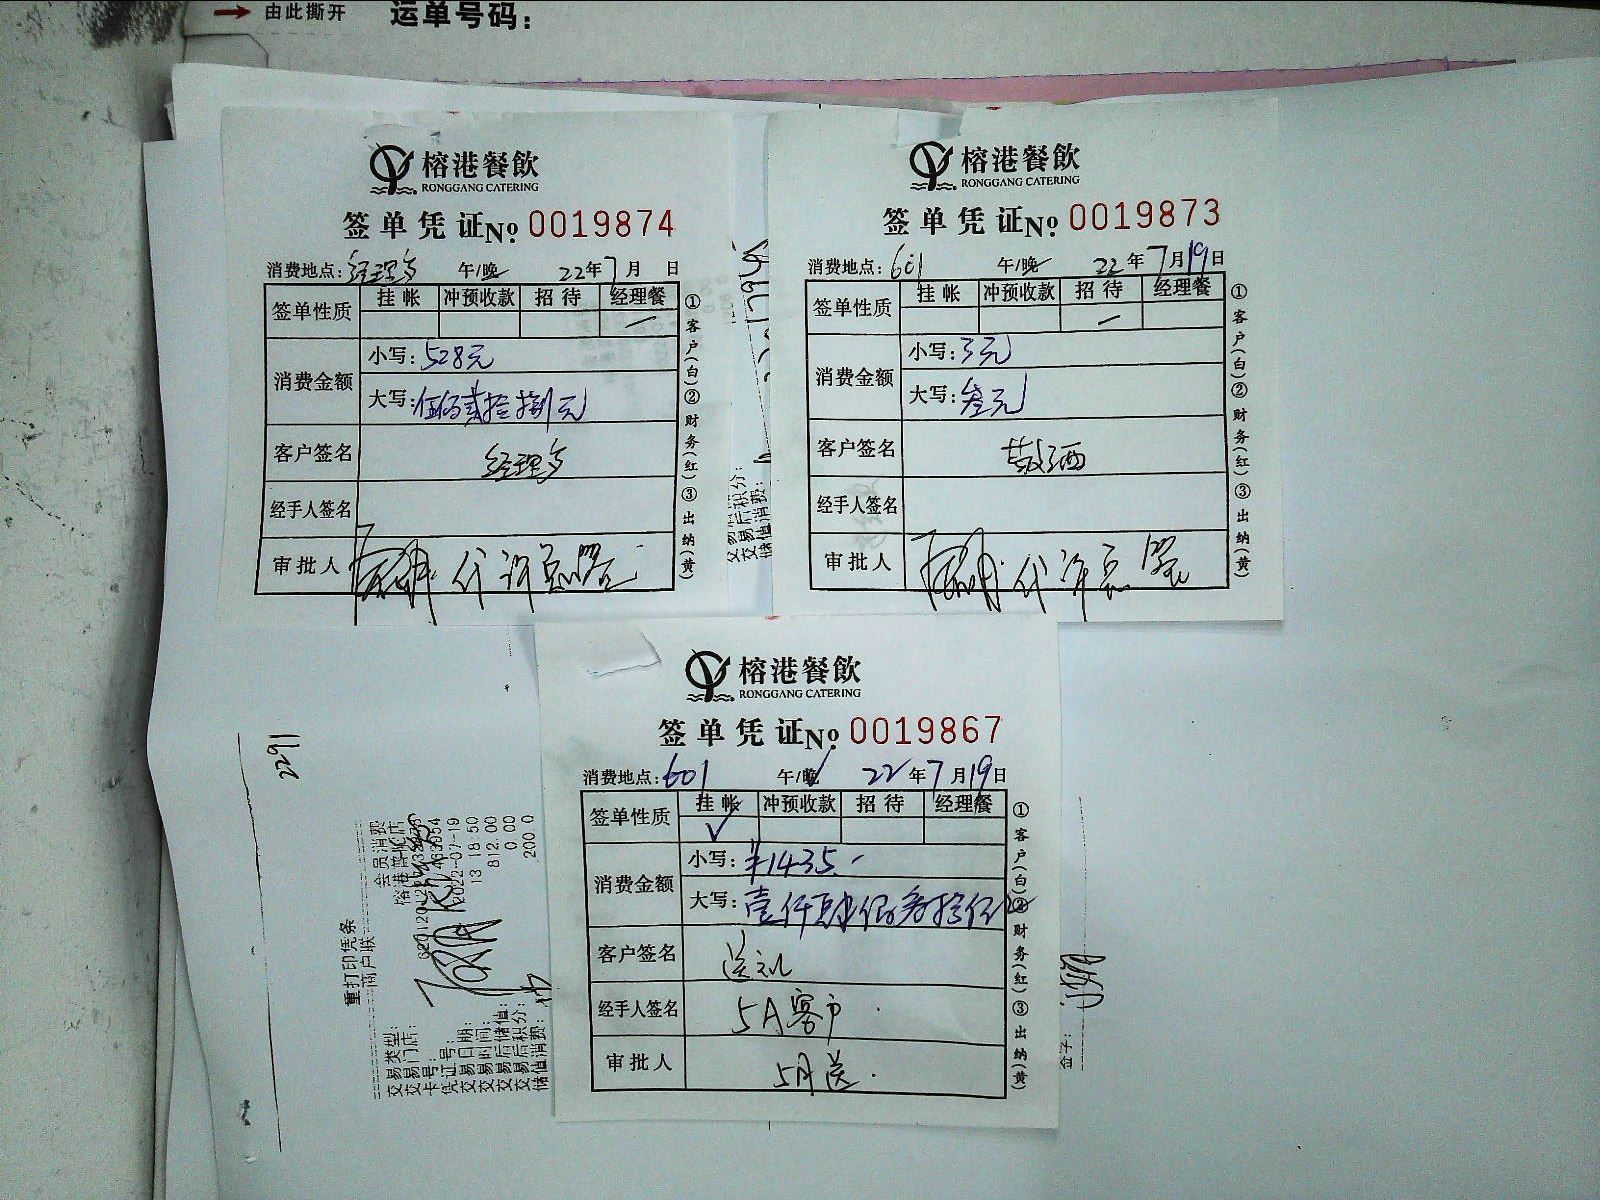 由此撕开
运单号码：
榕港餐飲
RONGGANG CATERING
签单凭证№ 0019874
消费地点：经理餐 午/晚 22年7月 日
签单性质 挂帐 冲预收款 招待 经理餐
消费金额
小写：528元
大写：伍佰贰拾捌元
客户签名 经理餐
经手人签名
审批人 代许总签
①客户(白)②财务(红)③出纳(黄)
榕港餐飲
RONGGANG CATERING
签单凭证№ 0019873
消费地点：601 午/晚 22年7月19日
签单性质 挂帐 冲预收款 招待 经理餐
消费金额
小写：3元
大写：叁元
客户签名
经手人签名
审批人 代许总签
①客户(白)②财务(红)③出纳(黄)
交易后积分：
储值消费：
榕港餐飲
RONGGANG CATERING
签单凭证№ 0019867
消费地点：601 午/晚 22年7月19日
签单性质 挂帐 冲预收款 招待 经理餐
消费金额
小写：¥1435
大写：壹仟肆佰叁拾伍元
客户签名 送礼
经手人签名 5A客户
审批人 5A送
①客户(白)②财务(红)③出纳(黄)
2291
重打印凭条
商户联
交易类型： 会员消费
交易门店：
卡号：
凭证号：
交易日期： 2022-07-19
交易时间： 13 18:50
交易后储值： 812.00
交易后积分： 0.00
储值消费： 200.0